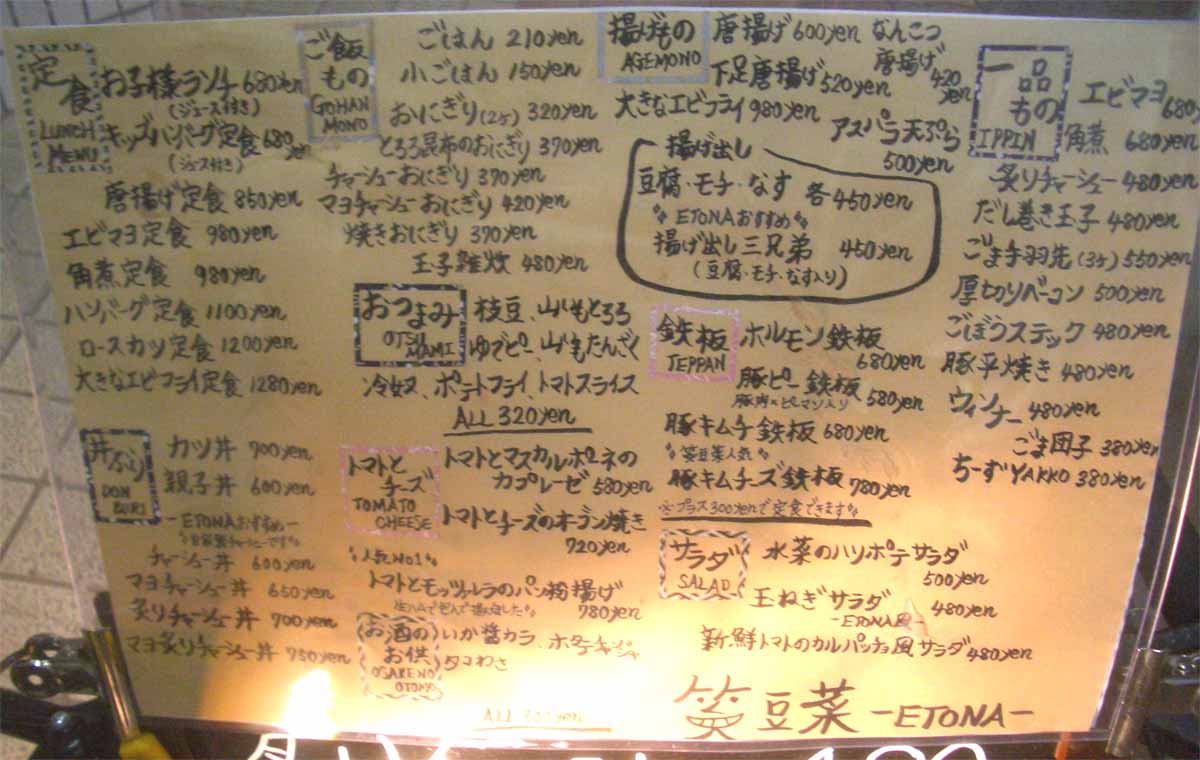 定食
LUNCH
MENU
お子様ランチ 680yen
(ジュース付き)
キッズハンバーグ定食 680yen
(ジュース付き)
唐揚げ定食 850yen
エビマヨ定食 980yen
角煮定食 980yen
ハンバーグ定食 1100yen
ロースカツ定食 1200yen
大きなエビフライ定食 1280yen
丼ぶり
DON
BURI
カツ丼 700yen
親子丼 600yen
-ETONAおすすめ-
自家製チャーシューです
チャーシュー丼 600yen
マヨチャーシュー丼 650yen
炙りチャーシュー丼 700yen
マヨ炙りチャーシュー丼 750yen
ご飯
もの
GOHAN
MONO
ごはん 210yen
小ごはん 150yen
おにぎり(2ケ) 320yen
とろろ昆布のおにぎり 370yen
チャーシューおにぎり 370yen
マヨチャーシューおにぎり 420yen
焼きおにぎり 370yen
玉子雑炊 480yen
おつまみ
OTSU
MAMI
枝豆、山いもとろろ
ゆでピー、山いもたんざく
冷奴、ポテトフライ、トマトスライス
ALL 320yen
トマトと
チーズ
TOMATO
CHEESE
トマトとマスカルポーネの
カプレーゼ 580yen
トマトとチーズのオーブン焼き
720yen
人気No1
トマトとモッツァレラのパン粉揚げ
生ハムで包んで揚げました
780yen
お酒の
お供
OSAKENO
OTOMO
いか醤カラ、ホタテキジャ
タコわさ
ALL 300yen
揚げもの
AGEMONO
唐揚げ 600yen
なんこつ
唐揚げ
420
yen
下足唐揚げ 520yen
大きなエビフライ 980yen
アスパラ天ぷら
500yen
揚げ出し
豆腐・モチ・なす 各450yen
ETONAおすすめ
揚げ出し三兄弟 450yen
(豆腐・モチ・なす入り)
鉄板
TEPPAN
ホルモン鉄板
680yen
豚ピー鉄板 580yen
豚肉とピーマン入り
豚キムチ鉄板 680yen
笑豆菜人気
豚キムチーズ鉄板 780yen
※プラス300yenで定食できます
サラダ
SALAD
水菜のハリポテサラダ
500yen
玉ねぎサラダ 480yen
-ETONA風-
新鮮トマトのカルパッチョ風サラダ 480yen
一品
もの
IPPIN
エビマヨ
680
角煮 680yen
炙りチャーシュー 480yen
だし巻き玉子 480yen
ごま手羽先(3ケ) 550yen
厚切りベーコン 500yen
ごぼうスティック 480yen
豚平焼き 480yen
ウィンナー 480yen
ごま団子 380yen
ちーずYAKKO 380yen
笑豆菜 -ETONA-